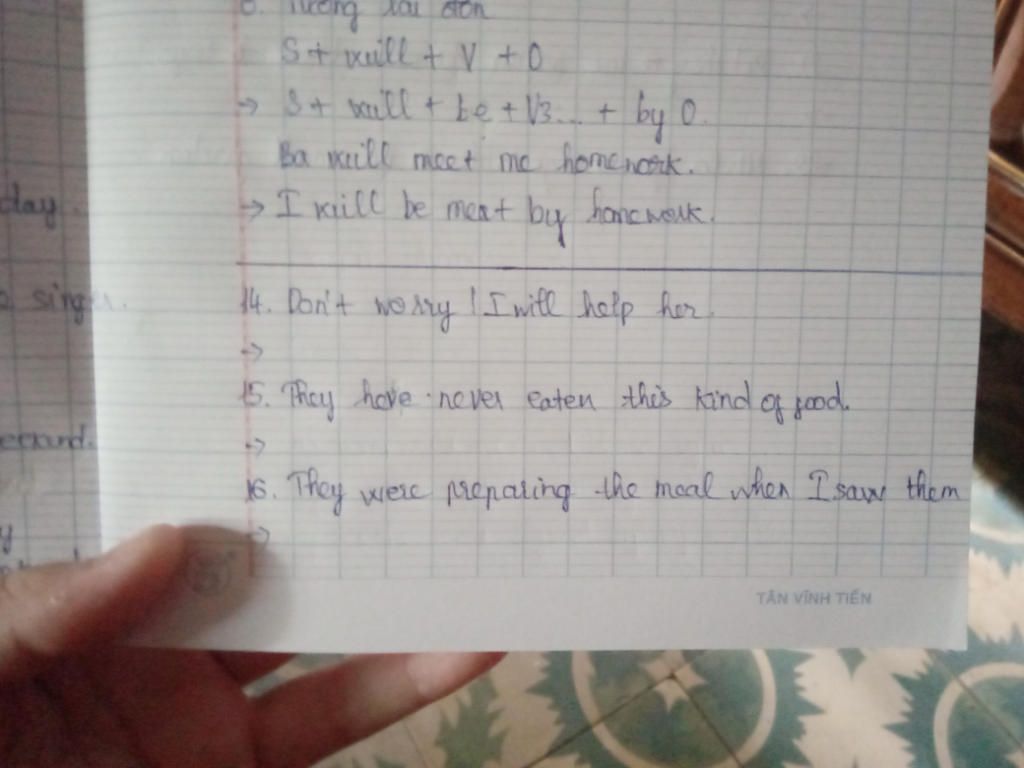 6. Tương lai đơn
S + will + V + O
→ S + will + be + V3... + by O.
Ba will meet me homework.
day.
→ I will be meat by homework.
singer.
14. Don't worry! I will help her.
→
15. They have never eaten this kind of food.
→
16. They were preparing the meal when I saw them
→
TÂN VĨNH TIẾN